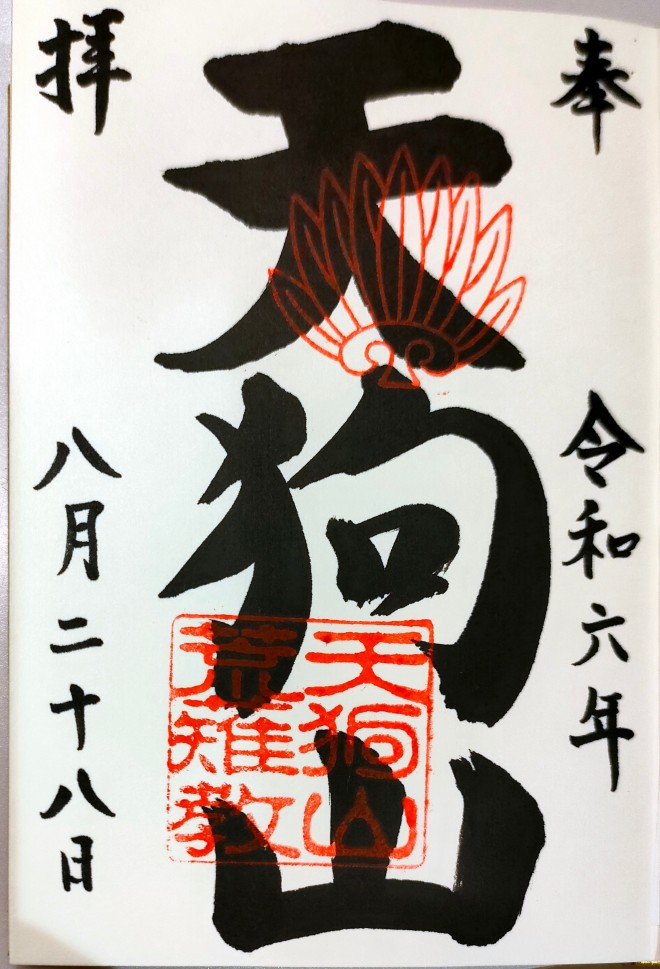 奉
令和六年
天狗山
天狗山
荒薙教
拝
八月二十八日